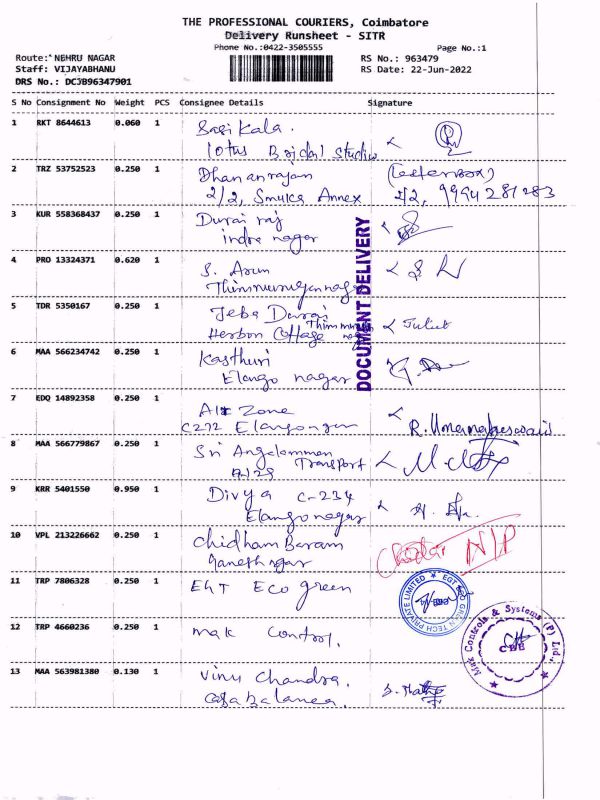 THE PROFESSIONAL COURIERS, Coimbatore
Delivery Runsheet - SITR
Phone No.:0422-3505555
Page No.:1
Route: NEHRU NAGAR
RS No.: 963479
Staff: VIJAYABHANU
RS Date: 22-Jun-2022
DRS No.: DCJB96347901
S No Consignment No Weight PCS Consignee Details Signature
1 RKT 8644613 0.060 1 Sasi Kala.
Lotus Bridal Studio
2 TRZ 53752523 0.250 1 Dhananrajan (Letter Box)
2/2, Annex 2/2, 9994281283
3 KUR 558368437 0.250 1 Durai raj
indra nagar
4 PRO 13324371 0.620 1 S. Arun
5 TDR 5350167 0.250 1 Jeba Durai
Cottage Juliet
6 MAA 566234742 0.250 1 Kasthuri
Elango nagar
7 EDQ 14892358 0.250 1 Zone
C272
8 MAA 566779867 0.250 1 Sri Angalamman
Transport
9 KRR 5401550 0.950 1 Divya C-234
Elango nagar
10 VPL 213226662 0.250 1 Chidham Baram
Ganesh nagar
11 TRP 7806328 0.250 1 Eco green
12 TRP 4660236 0.250 1 mak
13 MAA 563981380 0.130 1 Vinu Chandra.
DOCUMENT DELIVERY
TECH PRIVATE LIMITED
Mak Controls & Systems (P) Ltd.,
CBE